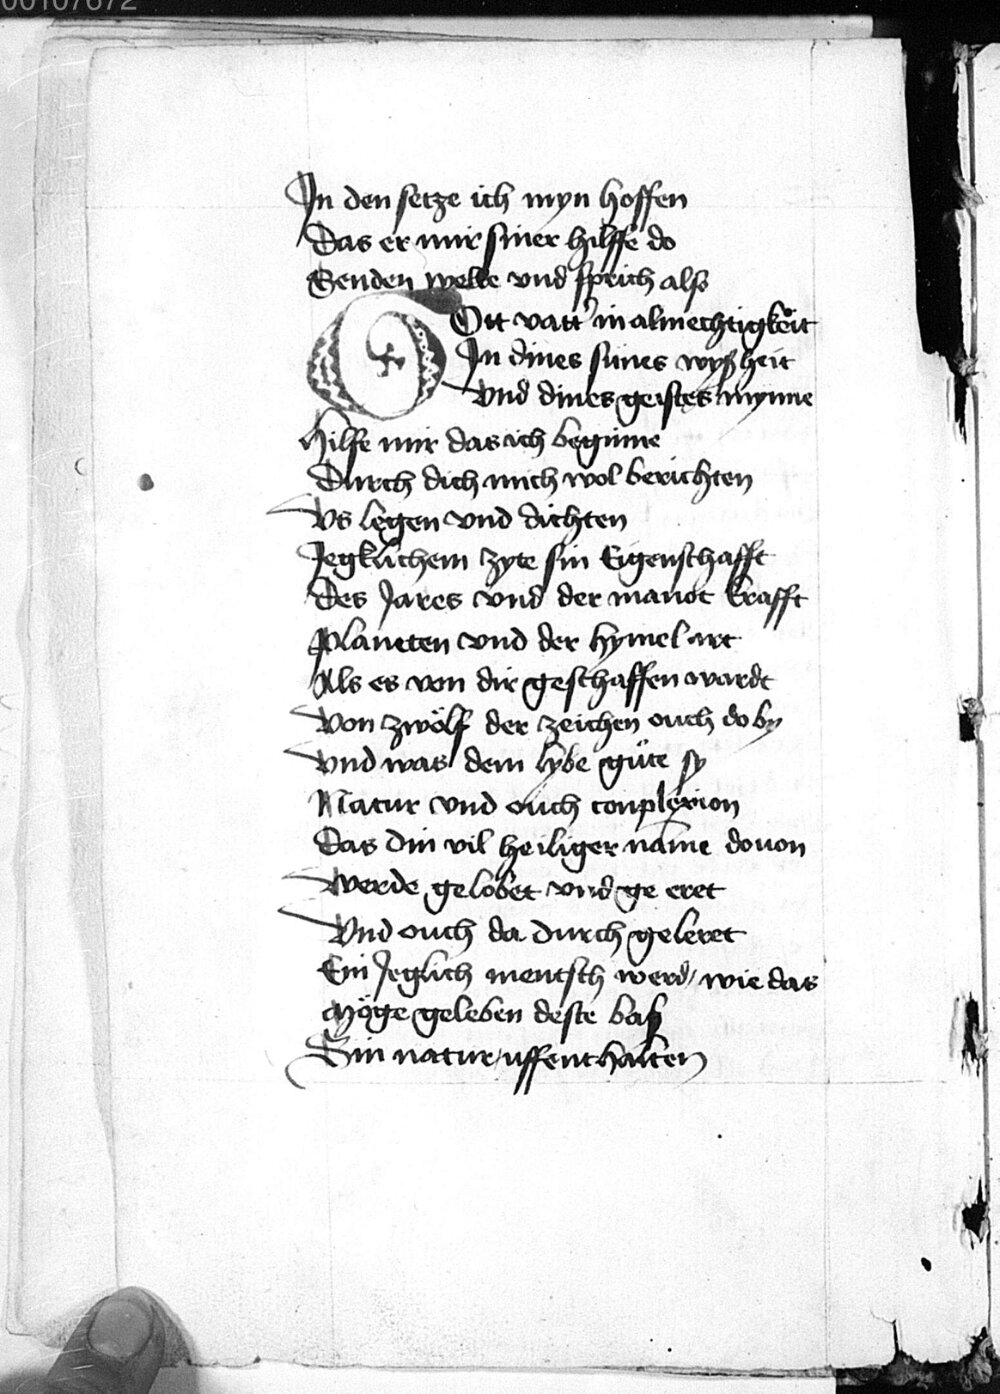 00107672
In den setze ich myn hoffen
Das er mir siner hilffe do
Senden welle vnd sprich also
Gott vatt' in almechtigkeit
In dines sunes wyßheit
Vnd dines geistes mynne
Hilfe mir das ich beginne
Durch dich mich wol berichten
Vs legen vnd dichten
Jegklichem zyte sin Eigenschafft
Des Jares vnd der manot krafft
Planeten vnd der hymel art
Als es von dir geschaffen wardt
Von zwölf der zeichen ouch do by
Vnd was dem lybe güte sy
Natur vnd ouch conplexion
Das din vil heiliger name douon
Werde gelobet vnd ge eret
Vnd ouch da durch geleret
Ein Jeglich mentsch werd / wie das
Möge geleben deste baß
Sin natur / uffenthalten